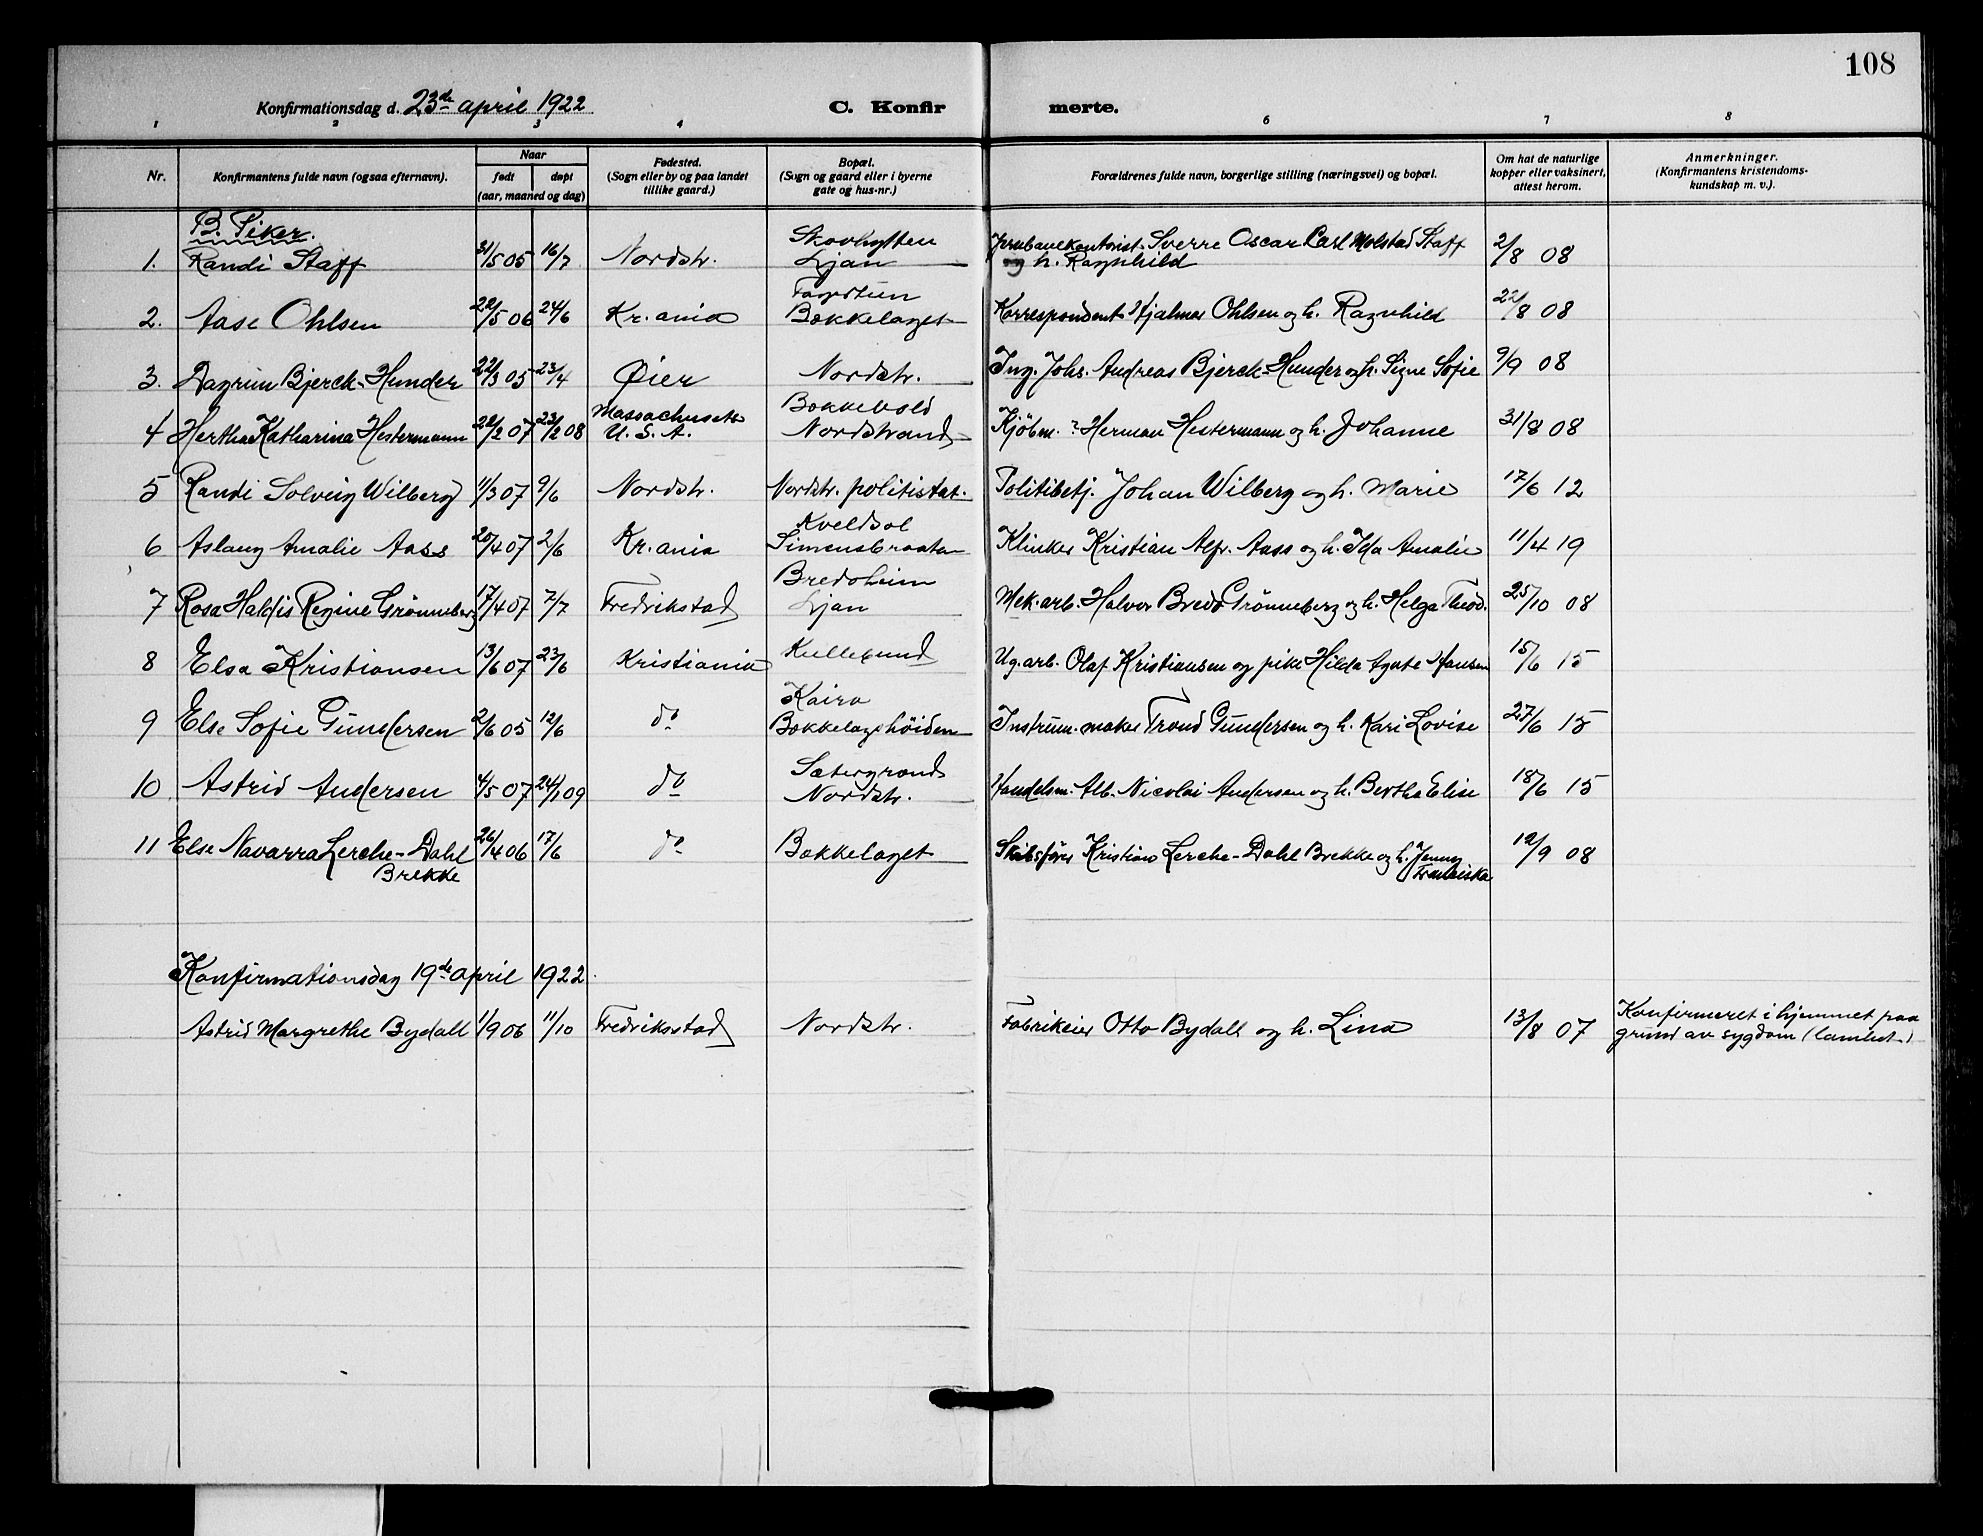 108
Konfirmationsdag d. 23de april 1922
C. Konfir merte.
1 2 3 4 6 7 8
Nr.
Konfirmantens fulde navn (ogsaa efternavn).
Naar
født døpt
(aar, maaned og dag)
Fødested.
(Sogn eller by og paa landet
tillike gaard.)
Bopæl.
(Sogn og gaard eller i byerne
gate og hus-nr.)
Forældrenes fulde navn, borgerlige stilling (næringsvei) og bopæl.
Om hat de naturlige
kopper eller vaksinert,
attest herom.
Anmerkninger.
(Konfirmantens kristendoms-
kundskap m. v.).
B. Piker.
Skovhytten
1. Randi Staff 31/5 05 16/7 Nordstr. Ljan Jernbanekontorist Sverre Oscar Carl Molstad Staff 2/8 08
og h. Ragnhild
2. Aase Ohlsen 22/5 06 24/6 Kr.ania Bækkelaget Korrespondent Hjalmar Ohlsen og h. Ragnhild 22/8 08
3. Dagrun Bjerck-Hunder 22/3 05 23/4 Øier Nordstr. Ing. Johs. Andreas Bjerck-Hunder og h. Signe Sofie 9/9 08
Massachusets
4 Hertha Katharina Hestermann 22/2 07 23/2 08 U.S.A. Nordstrand Kjöbm. Herman Hestermann og h. Johanne 31/8 08
5 Randi Solveig Wilberg 11/3 07 9/6 Nordstr. Nordstr. politistat. Politibetj. Johan Wilberg og h. Marie 17/6 12
Kveldsol
6 Aslaug Amalie Aass 20/4 07 2/6 Kr.ania Simensbraaten Klinker Kristian Alfr. Aass og h. Ida Amalie 11/4 19
Bredoheim
7 Rosa Haldis Regine Grønneberg 17/4 07 7/7 Fredrikstad Ljan Mek.arb. Halvor Bredo Grønneberg og h. Helga Theod. 25/10 08
8 Elsa Kristiansen 13/6 07 23/6 Kristiania Kullesund Ug.arb. Olaf Kristiansen og pike Hilda Agate Hansen 15/6 15
Kairo
9 Else Sofie Gundersen 2/6 05 12/6 do Bækkelagshöiden Instrum.maker Trond Gundersen og h. Kari Lovise 27/6 15
Sætergrand
10. Astrid Andersen 4/5 07 24/1 09 do Nordstr. Handelsm. Alb. Nicolai Andersen og h. Bertha Elise 18/6 15
11 Else Navarra Lerche-Dahl 26/4 06 17/6 do Bækkelaget Skibsfører Kristian Lerche-Dahl Brekke og h. Jenny 12/9 08
Brekke Franciska
Konfirmationsdag 19de april 1922.
Astrid Margrethe Bydall 1/9 06 11/10 Fredriksstad Nordstr. Fabrikeier Otto Bydall og h. Lina 13/8 07 Konfirmeret i hjemmet paa
grund av sygdom (lamhet)